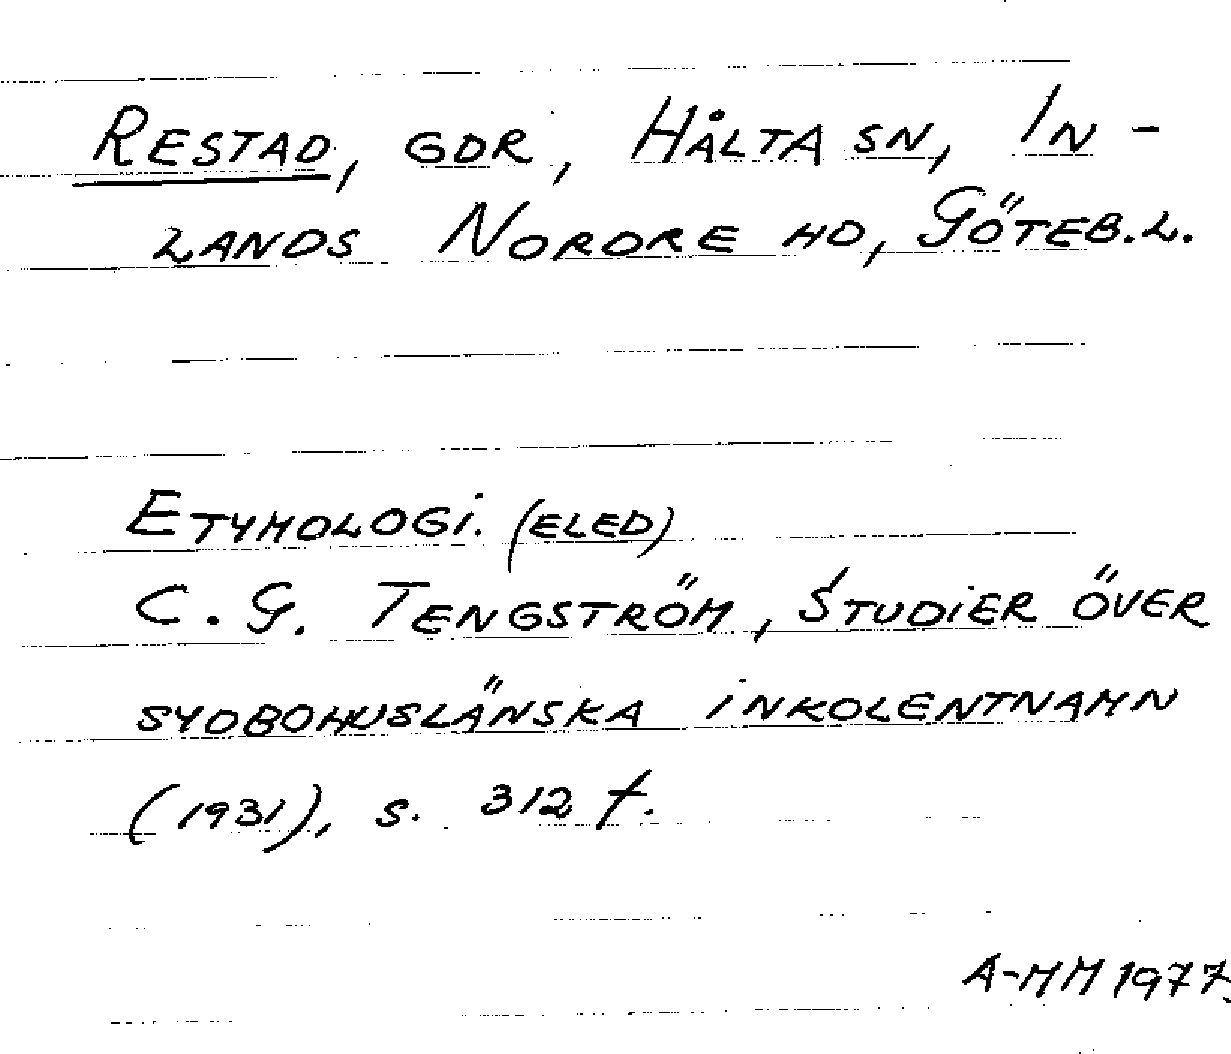 RESTAD, GDR, HÅLTA SN, IN-
LANDS NORDRE HD, GÖTEB.L.
ETYMOLOGI. (ELED)
C. G. TENGSTRÖM, STUDIER ÖVER
SYDBOHUSLÄNSKA INKOLENTNAMN
(1931), S. 312 f.
A-MM 1977.